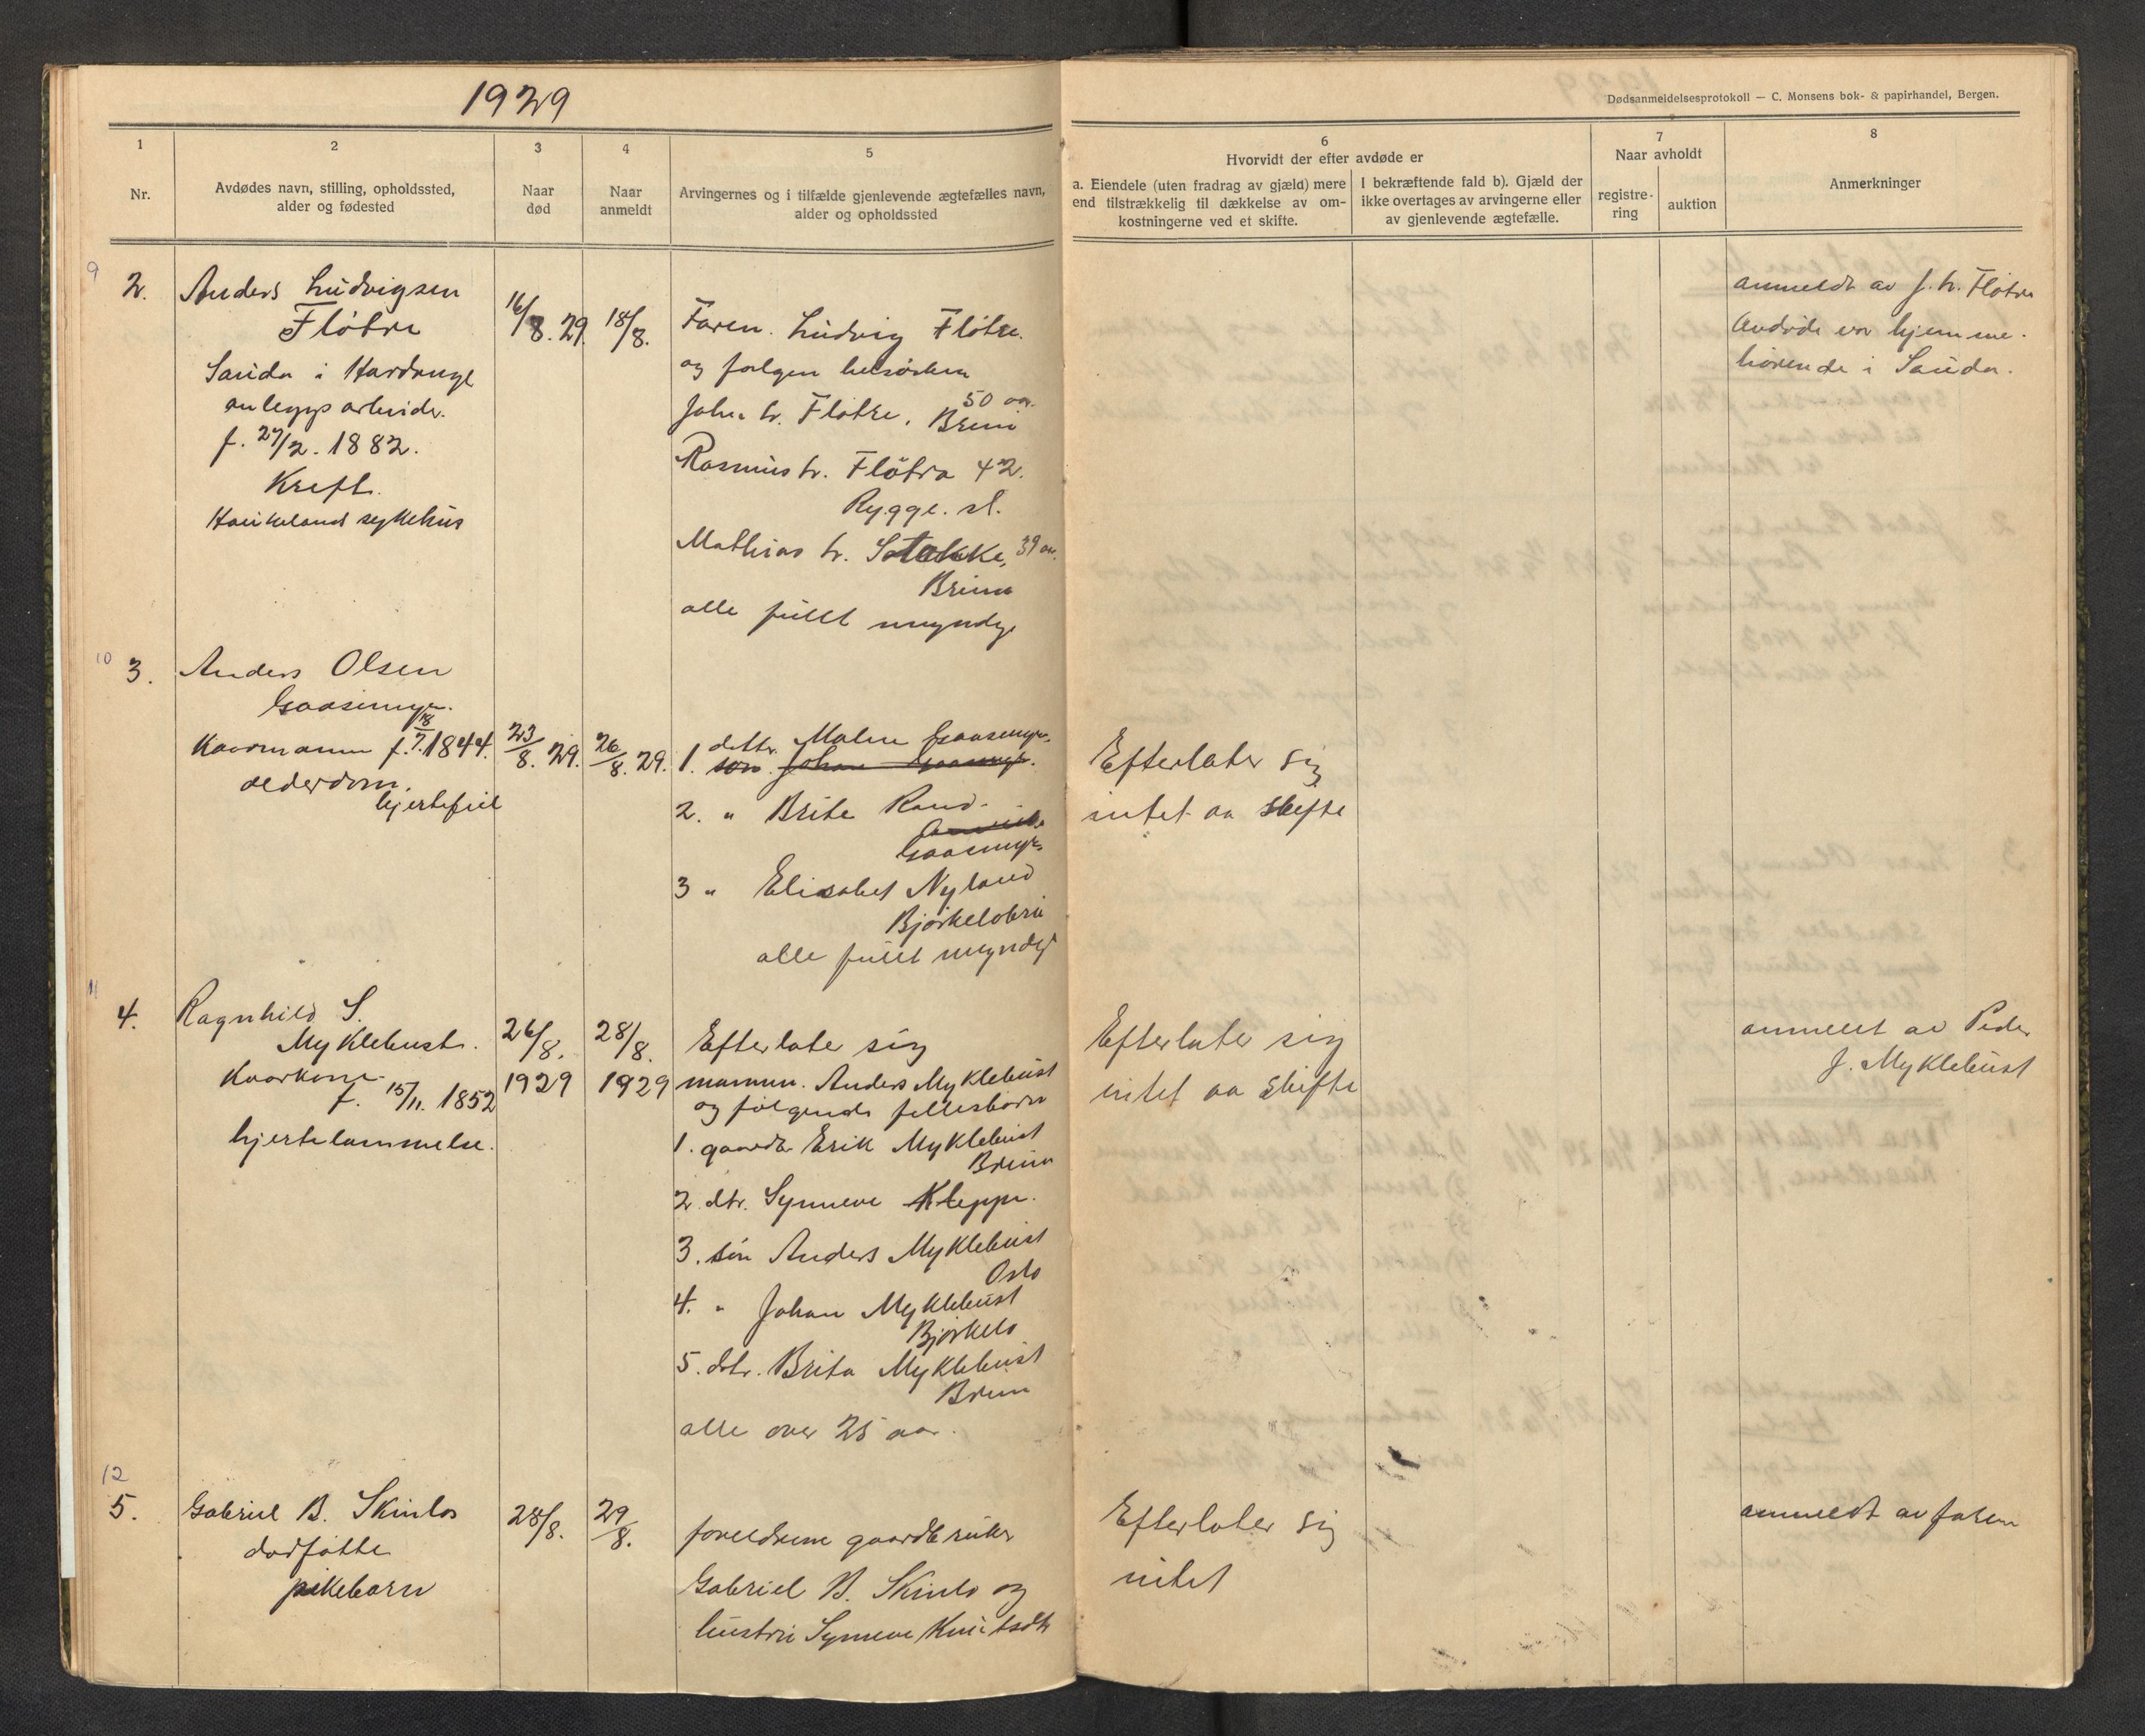 1929
Dødsanmeldelsesprotokoll — C. Monsens bok- & papirhandel, Bergen.
1
Nr.
2
Avdødes navn, stilling, opholdssted,
alder og fødested
3
Naar
død
4
Naar
anmeldt
5
Arvingernes og i tilfælde gjenlevende ægtefælles navn,
alder og opholdssted
6
Hvorvidt der efter avdøde er
a. Eiendele (uten fradrag av gjæld) mere
end tilstrækkelig til dækkelse av om-
kostningerne ved et skifte.
I bekræftende fald b). Gjæld der
ikke overtages av arvingerne eller
av gjenlevende ægtefælle.
7
Naar avholdt
registre-
ring
auktion
8
Anmerkninger
9
2.
Anders Ludvigsen
Fløtre
Sauda i Hardange
anleggs arbeider.
f. 27/2. 1882.
Kreft.
Haukeland sykehus
16/8. 29.
18/8.
Faren. Ludvig Fløtre.
og følgen
John L. Fløtre, 50 aar.
Breim
Rasmus L. Fløtra 42.
Rygge. st.
Mathias L. 39 aar.
Breim
alle fullt myndige
anmeldt av J. L. Fløtre
Avdøde var hjemme-
hørende i Sauda.
10
3.
Anders Olsen
Gaasemyr.
Kaarmann f. 18/7. 1844.
alderdom.
hjertefeil
23/8. 29.
26/8. 29.
1. dtter. Malene Gaasemyr.
søn Johan Gaasemyr.
2. " Brite Rand.
Gaasemyr
3 " Elisabet Nyland
Bjørkelobru
alle fullt myndige
Efterlater sig
intet aa skifte
11
4.
Ragnhild S.
Myklebust.
Kaarkone
f. 15/11. 1852
hjertelammelse.
26/8.
1929
28/8.
1929
Efterlate sig
mannen. Anders Myklebust
og følgende fellesbarn
1. gaardbr Erik Myklebust
Breim
2. dtr. Synneve Kleppe.
3. søn Anders Myklebust
Oslo
4. " Johan Myklebust
Bjørkelo
5. dtr. Brita Myklebust
Breim
alle over 25 aar.
Efterlater sig
intet aa skifte
anmeldt av Peder
J. Myklebust
12
5.
Gabriel B. Skinlos
dødfødte
pikebarn
28/8.
29/8.
foreldrene gaardbruker
Gabriel B. Skinlo og
hustru Synneve Knutsdtr
Efterlater sig
intet
anmeldt av faren